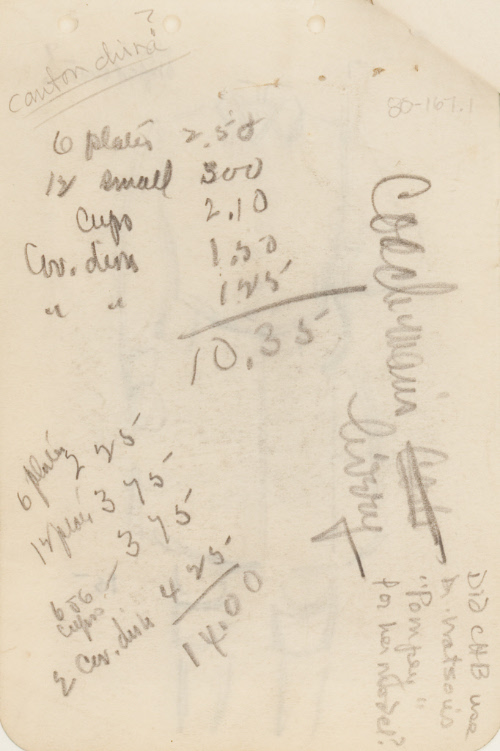 canton china?
80-167.1
6 plates 2.50
12 small 300
Cups 2.10
Cov. dish 1.50
" " 1 25
10.35
6 plates 2 25
12 plates 3 75
6 cups — 3 75
2 Cov. dish 4 25
14.00
Coachman's
livery
Did CHB use
M. Watson's
"Pompey"
for her model?